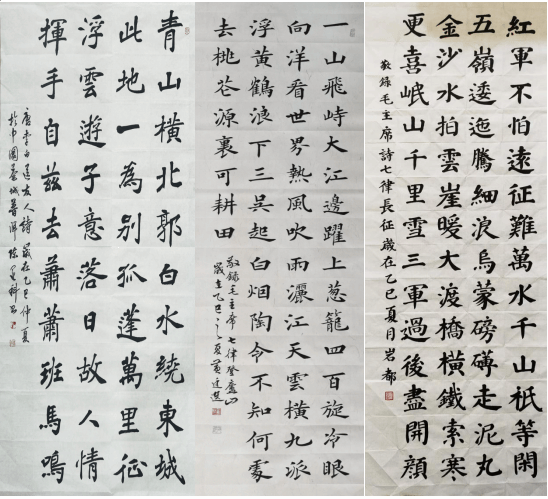 青山橫北郭白水繞東城
此地一為別孤蓬萬里征
浮雲遊子意落日故人情
揮手自茲去蕭蕭班馬鳴
唐李白送友人詩歲在乙巳仲夏
於中國
一山飛峙大江邊躍上葱籠四百旋冷眼
向洋看世界熱風吹雨灑江天雲橫九派
浮黃鶴浪下三吳起白烟陶令不知何處
去桃花源裏可耕田
敬錄毛主席七律登廬山
歲在乙巳之夏黃
紅軍不怕遠征難萬水千山衹等閑
五嶺逶迤騰細浪烏蒙磅礴走泥丸
金沙水拍雲崖暖大渡橋橫鐵索寒
更喜岷山千里雪三軍過後盡開顏
敬錄毛主席詩七律長征歲在乙巳夏月岩都